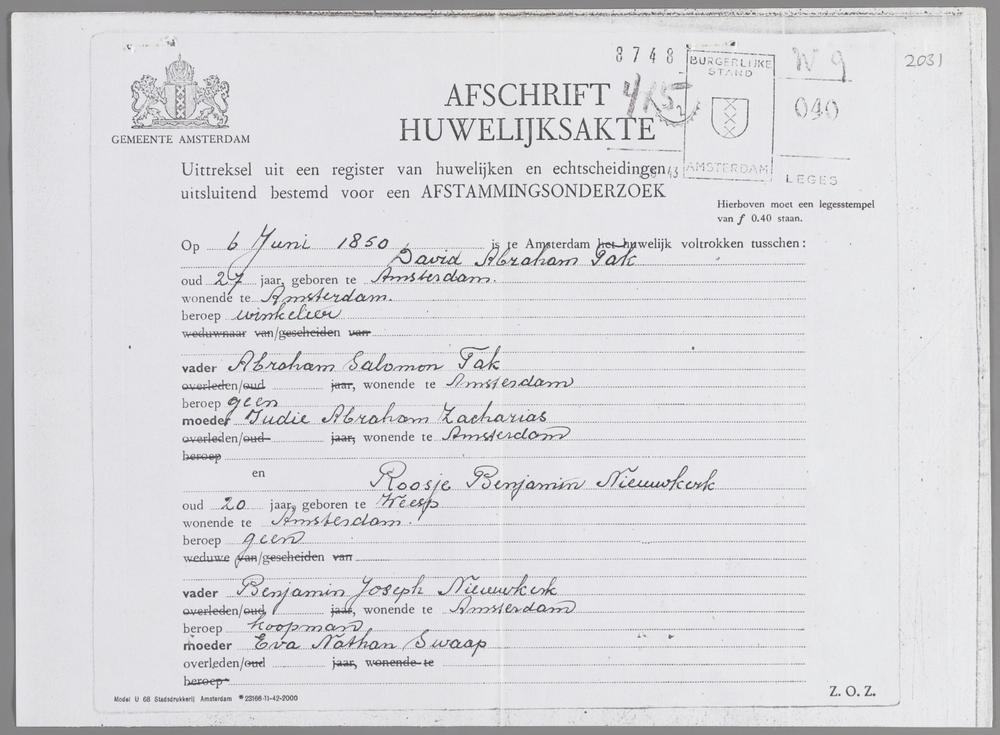 8748
W 9
2031
BURGERLIJKE
STAND
AMSTERDAM
040
LEGES
GEMEENTE AMSTERDAM
AFSCHRIFT
HUWELIJKSAKTE
Uittreksel uit een register van huwelijken en echtscheidingen,
uitsluitend bestemd voor een AFSTAMMINGSONDERZOEK
Hierboven moet een legesstempel
van ƒ 0.40 staan.
Op 6 Juni 1850 is te Amsterdam het huwelijk voltrokken tusschen:
David Abraham Tak
oud 27 jaar, geboren te Amsterdam.
wonende te Amsterdam.
beroep winkelier
weduwnaar van/gescheiden van
vader Abraham Salomon Tak
overleden/oud jaar, wonende te Amsterdam
beroep geen
moeder Judie Abraham Zacharias
overleden/oud jaar, wonende te Amsterdam
beroep
en Roosje Benjamin Nieuwkerk
oud 20 jaar, geboren te Weesp
wonende te Amsterdam.
beroep geen
weduwe van/gescheiden van
vader Benjamin Joseph Nieuwkerk
overleden/oud jaar, wonende te Amsterdam
beroep koopman
moeder Eva Nathan Swaap
overleden/oud jaar, wonende te
beroep
Model U 68 Stadsdrukkerij Amsterdam *23166-11-42-2000
Z. O. Z.